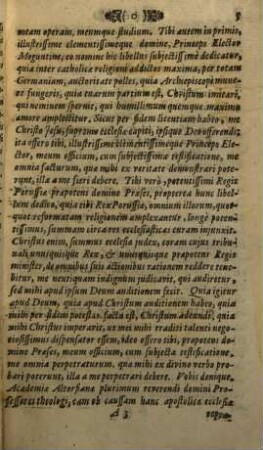 5
meam operam, meumque studium. Tibi autem in primis,
illustrissime clementissimeque domine, Princeps Elector
Moguntine, eo nomine bis libellus subjectissimè dedicatur,
quia inter catholicæ religioni addictos maxima, per totam
Germaniam, auctoritate polles, quia Archiepiscopi mune-
re fungeris, quia tuarum partium est, Christum imitari,
qui neminem spernit, qui humillimum quemque maximo
amore amplectitur. Sicut per fidem licentiam habeo, me
Christo Jesu, supremo ecclesiæ capiti, ipsique Deo offerendi;
ita offero tibi, illustrissime clementissimeque Princeps Ele-
ctor, meum officium, cum subjectissima testificatione, me
omnia facturum, quæ mihi ex veritate demonstrari pote-
runt, illa a me fieri debere. Tibi verò, potentissimi Regis
Porussiæ præpotens domine Præses, propterea hunc libel-
lum dedico, quia tibi Rex Porussiæ, omnium illorum, quot-
quot reformatam religionem amplexantur, longè poten-
tissimus, summam circa res ecclesiasticas curam injunxit.
Christus enim, summus ecclesiæ judex, coram cujus tribu-
nali, unusquisque Rex, & unusquisque præpotens Regis
minister, de omnibus suis actionibus rationem reddere tene-
bitur, me nequaquam indignum judicavit, qui audiretur,
sed mihi apud ipsum Deum auditionem fecit. Quia igitur
apud Deum, quia apud Christum auditionem habeo, quia
mihi per fidem potestas facta est, Christum adeundi, quia
mihi Christus imperavit, ut mei mihi traditi talenti nego-
tiosissimus dispensator essem, ideo offero tibi, præpotens do-
mine Præses, meum officium, cum subjecta testificatione,
me omnia perpetraturum, quæ mihi ex divino verbo pro-
bari poterunt, illa a me perpetrari debere. Vobis denique,
Academiæ Altorfianæ plurimum reverendi domini Pro-
fessores theologi, eam ob caussam hanc apostolicæ ecclesiæ
A 3 repræ-